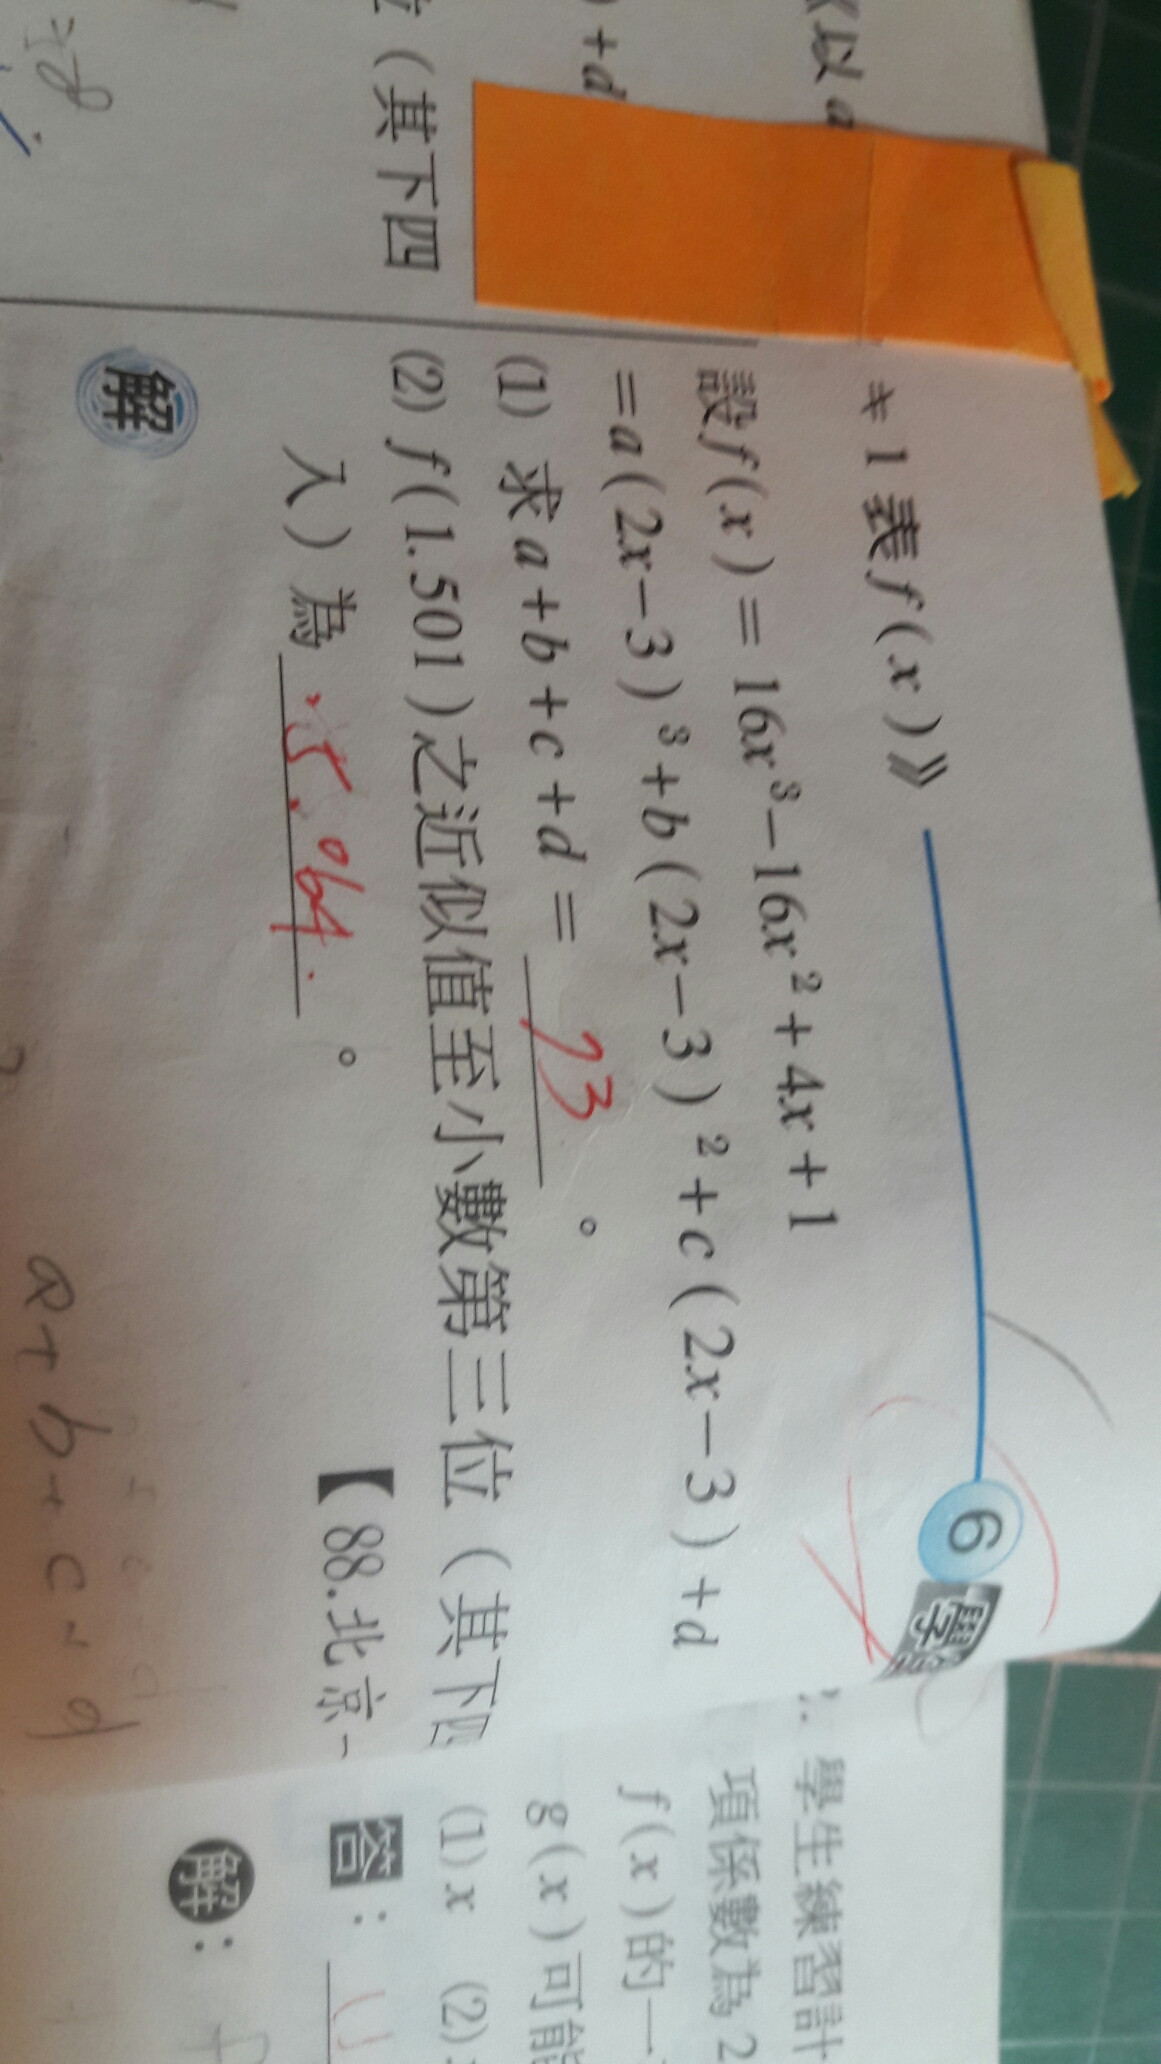 以 a
+d
(其下四
≠1表f(x)》
6
設f(x)=16x³-16x²+4x+1
=a(2x-3)³+b(2x-3)²+c(2x-3)+d
(1) 求a+b+c+d= 23 。
(2) f(1.501)之近似值至小數第三位(其下四
入)為 5.064 。
【88.北京一
解
a+b+c
學生練習計
項係數為2
f(x)的一
g(x)可能
(1) x (2)
答:
解: